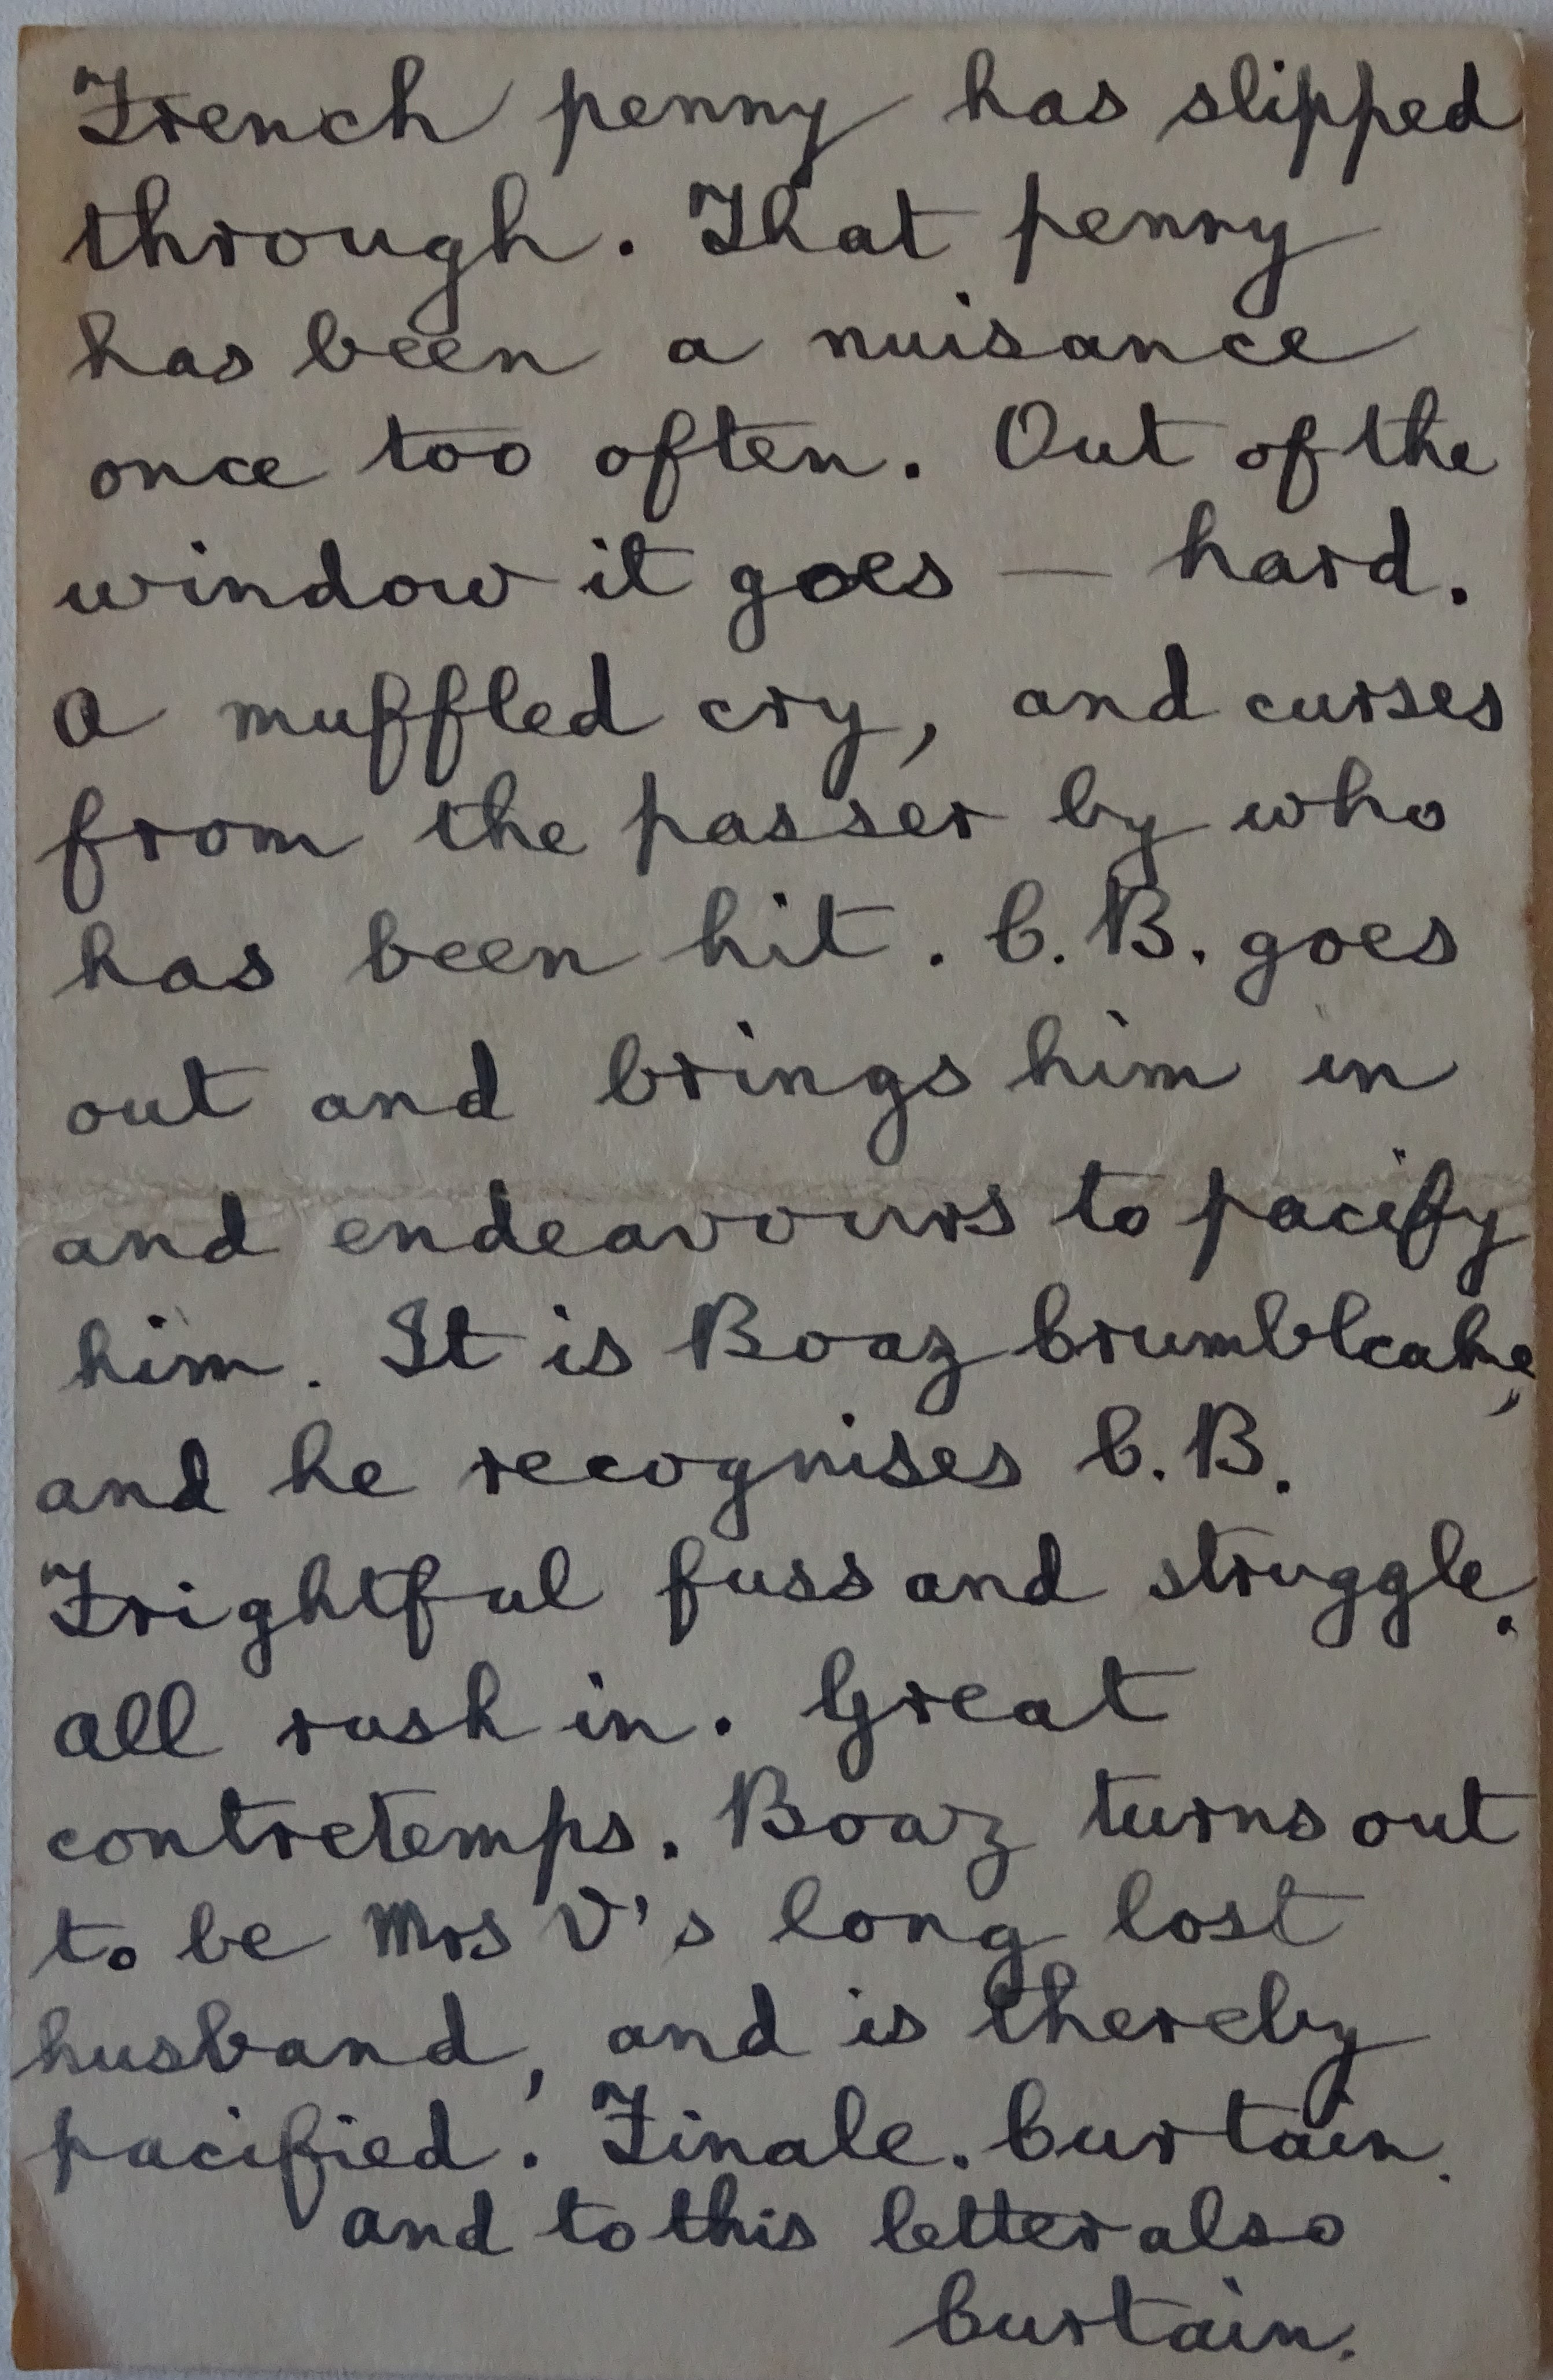 French penny has slipped
through. That penny
has been a nuisance
once too often. Out of the
window it goes — hard.
A muffled cry, and curses
from the passer by who
has been hit. C. B. goes
out and brings him in
and endeavours to pacify
him. It is Boaz Crumblcake,
and he recognises C. B.
Frightful fuss and struggle.
All rush in. Great
contretemps. Boaz turns out
to be Mrs V's long lost
husband, and is thereby
pacified. Finale. Curtain.
and to this letter also
Curtain.